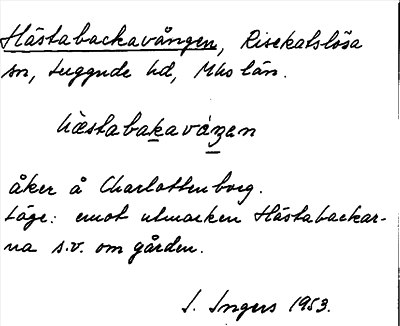 Hästabackavången, Risekatslösa
sn, Luggude hd, Mho län.
hæstabakavåŋen
åker å Charlottenborg.
Läge: emot utmarken Hästabackar-
na s.v. om gården.
I. Ingers 1953.